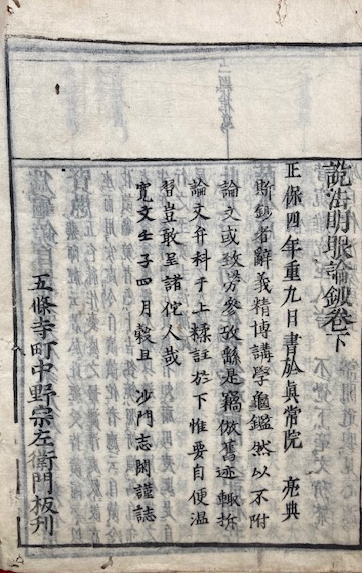 説法明眼論鈔卷下
正保四年重九日書於眞常院 亮典
斯鈔者辭義精博講學龜鑑然以不附
論文或致労參攷繇是竊倣舊迹輙拆
論文幷科于上糅註於下惟要自便温
習豈敢呈諸佗人哉
寛文壬子四月穀旦 沙門志閑謹誌
五條寺町中野宗左衞門板刊